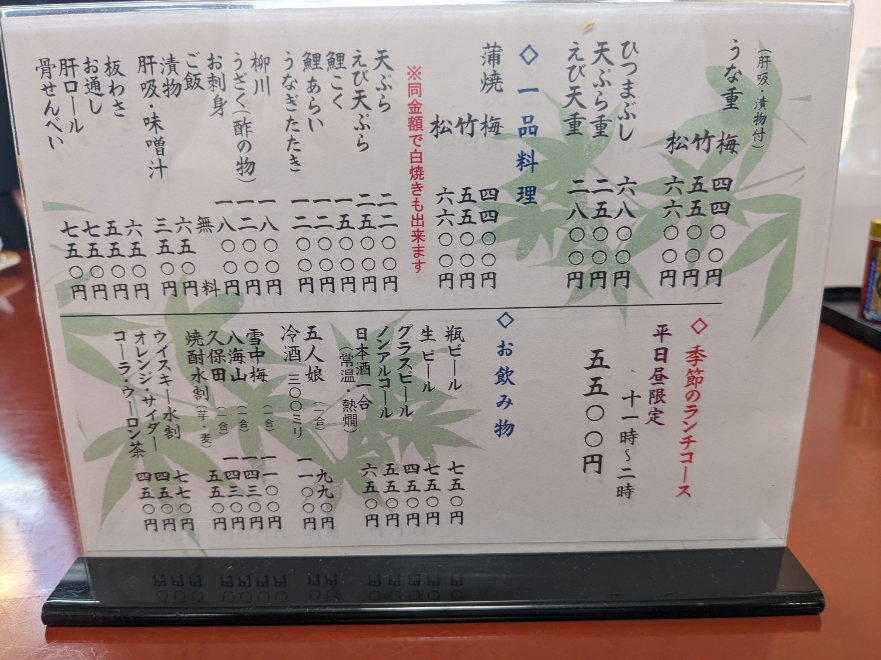 (肝吸・漬物付)
うな重 梅 四四〇〇円
竹 五五〇〇円
松 六六〇〇円
ひつまぶし 六八〇〇円
天ぷら重 二五〇〇円
えび天重 二八〇〇円
◇一品料理
蒲焼 梅 四四〇〇円
竹 五五〇〇円
松 六六〇〇円
※同金額で白焼きも出来ます
天ぷら 二二〇〇円
えび天ぷら 二五〇〇円
鯉こく 一五〇〇円
鯉あらい 一二〇〇円
うなぎたたき 一二〇〇円
柳川 一八〇〇円
うざく(酢の物) 一二〇〇円
お刺身 一八〇〇円
ご飯 無料
漬物 六五〇円
肝吸・味噌汁 三五〇円
板わさ 六五〇円
お通し 五五〇円
肝ロール 七五〇円
骨せんべい 七五〇円
◇季節のランチコース
平日昼限定
十一時〜二時
五五〇〇円
◇お飲み物
瓶ビール 七五〇円
生ビール 七五〇円
グラスビール 四五〇円
ノンアルコール 五五〇円
日本酒一合 六五〇円
(常温・熱燗)
五人娘(一合) 九九〇円
冷酒 三〇〇ミリ 一一〇〇円
雪中梅(一合) 一一〇〇円
八海山(一合) 一四三〇円
久保田(一合) 一四三〇円
焼酎水割(芋・麦) 五五〇円
ウイスキー水割 七七〇円
オレンジ・サイダー 四五〇円
コーラ・ウーロン茶 四五〇円